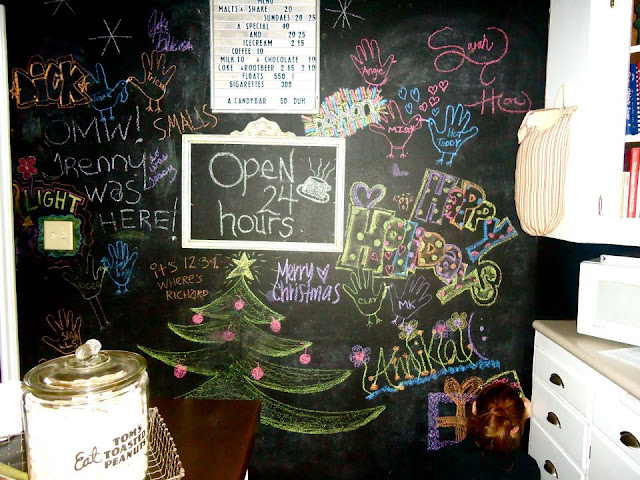 MENU
MALTS & SHAKE 20
SUNDAES 20 25
A SPECIAL 40
AND 20 25
ICECREAM 2 15
COFFEE 10
MILK 10 & CHOCOLATE 10
COKE &ROOTBEER 2 15 2 10
FLOATS 550 1
SIGARETTES 300
A CANDYBAR 50 DUH
DICK
OMW!
JRenny
was
HERE!
SMALLS
LIGHT
Open
24
hours
Angie
MISSY
Hot
TODDY
Sarah
Happy
Holidays
it's 12:34.
WHERE'S
RICHARD
Merry
Christmas
CLAY
MK
Anikka (:
Eat TOM'S
TOASTED
PEANUTS